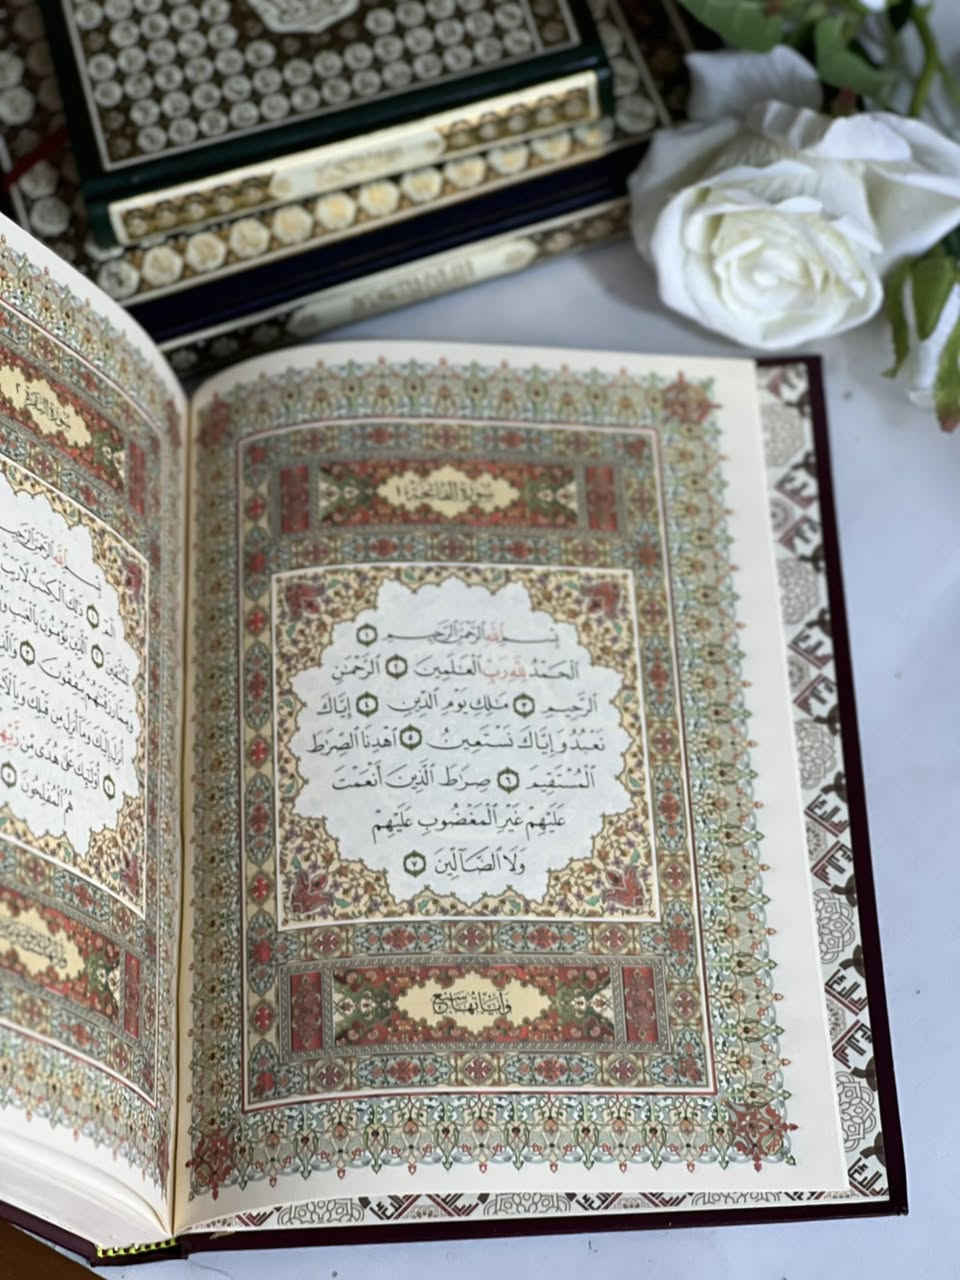 سورة الفاتحة ١
بِسْمِ اللَّهِ الرَّحْمَٰنِ الرَّحِيمِ ١
الْحَمْدُ لِلَّهِ رَبِّ الْعَالَمِينَ ٢ الرَّحْمَٰنِ
الرَّحِيمِ ٣ مَالِكِ يَوْمِ الدِّينِ ٤ إِيَّاكَ
نَعْبُدُ وَإِيَّاكَ نَسْتَعِينُ ٥ اهْدِنَا الصِّرَاطَ
الْمُسْتَقِيمَ ٦ صِرَاطَ الَّذِينَ أَنْعَمْتَ
عَلَيْهِمْ غَيْرِ الْمَغْضُوبِ عَلَيْهِمْ
وَلَا الضَّالِّينَ ٧
وآياتها سبع
سورة البقرة ٢
اللَّهِ الرَّحْمَٰنِ الرَّحِيمِ
الم ١ ذَٰلِكَ الْكِتَابُ لَا رَيْبَ
لِلْمُتَّقِينَ ٢ الَّذِينَ يُؤْمِنُونَ بِالْغَيْبِ
وَمِمَّا رَزَقْنَاهُمْ يُنْفِقُونَ ٣
أُنْزِلَ إِلَيْكَ وَمَا أُنْزِلَ مِنْ قَبْلِكَ
٤ أُولَٰئِكَ عَلَىٰ هُدًى مِنْ رَبِّهِمْ
هُمُ الْمُفْلِحُونَ ٥